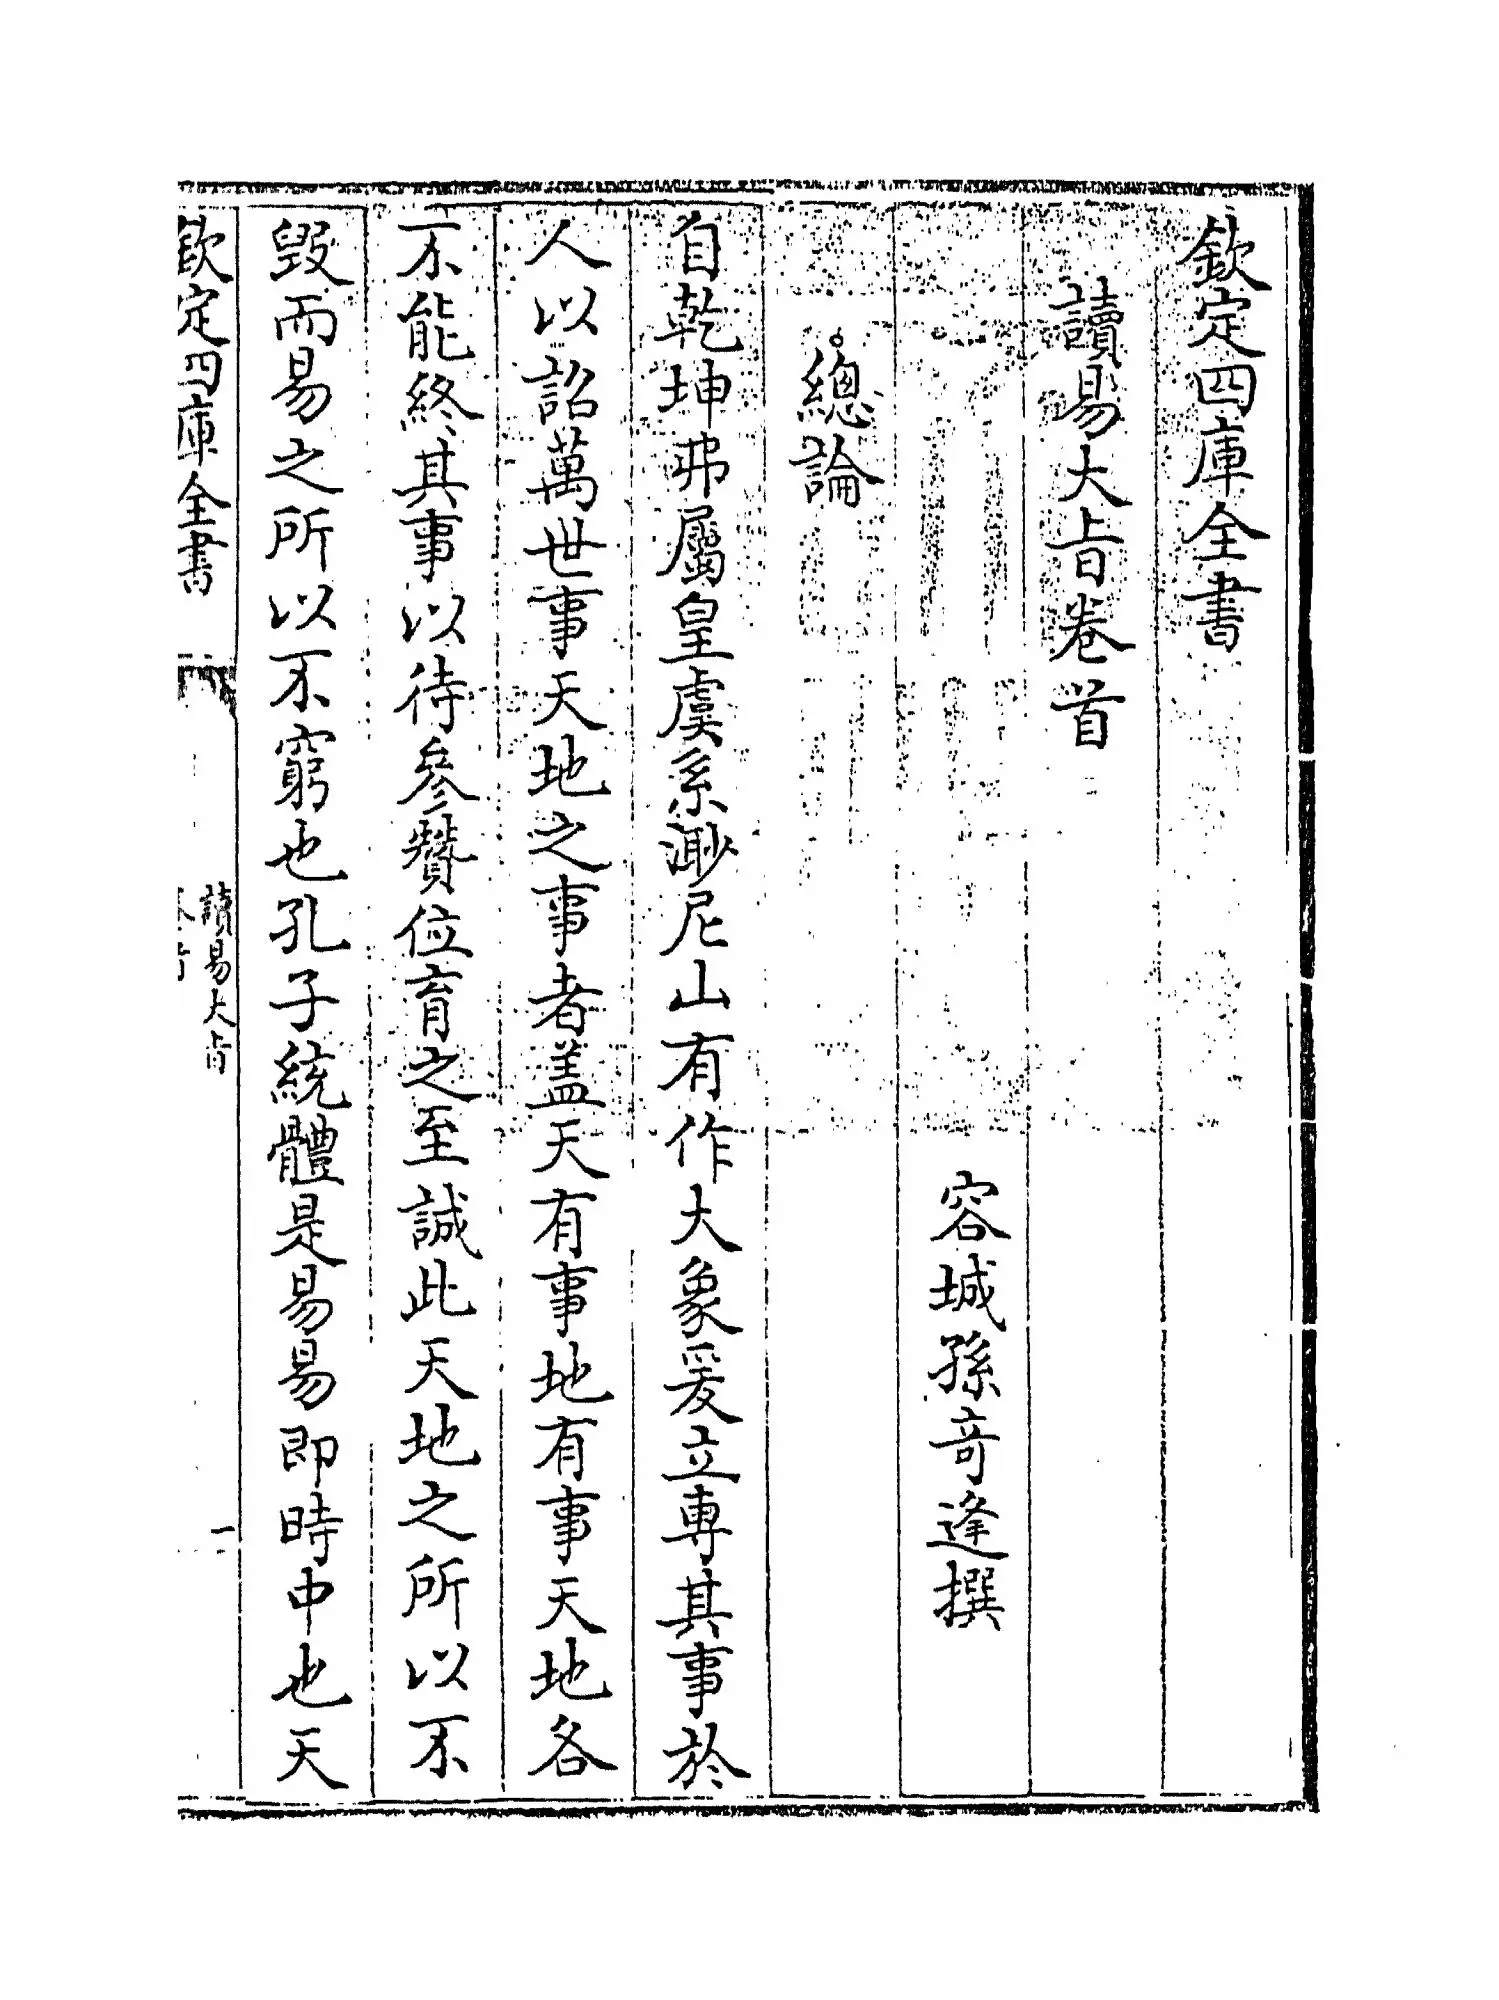 欽定四庫全書
讀易大㫖卷首
容城孫竒逢撰
總論
自乾坤弗屬皇虞系渺尼山有作大象爰立專其事於
人以詔萬世事天地之事者葢天有事地有事天地各
不能終其事以待參贊位育之至誠此天地之所以不
毀而易之所以不窮也孔子統體是易易即時中也天
欽定四庫全書
讀易大㫖
一